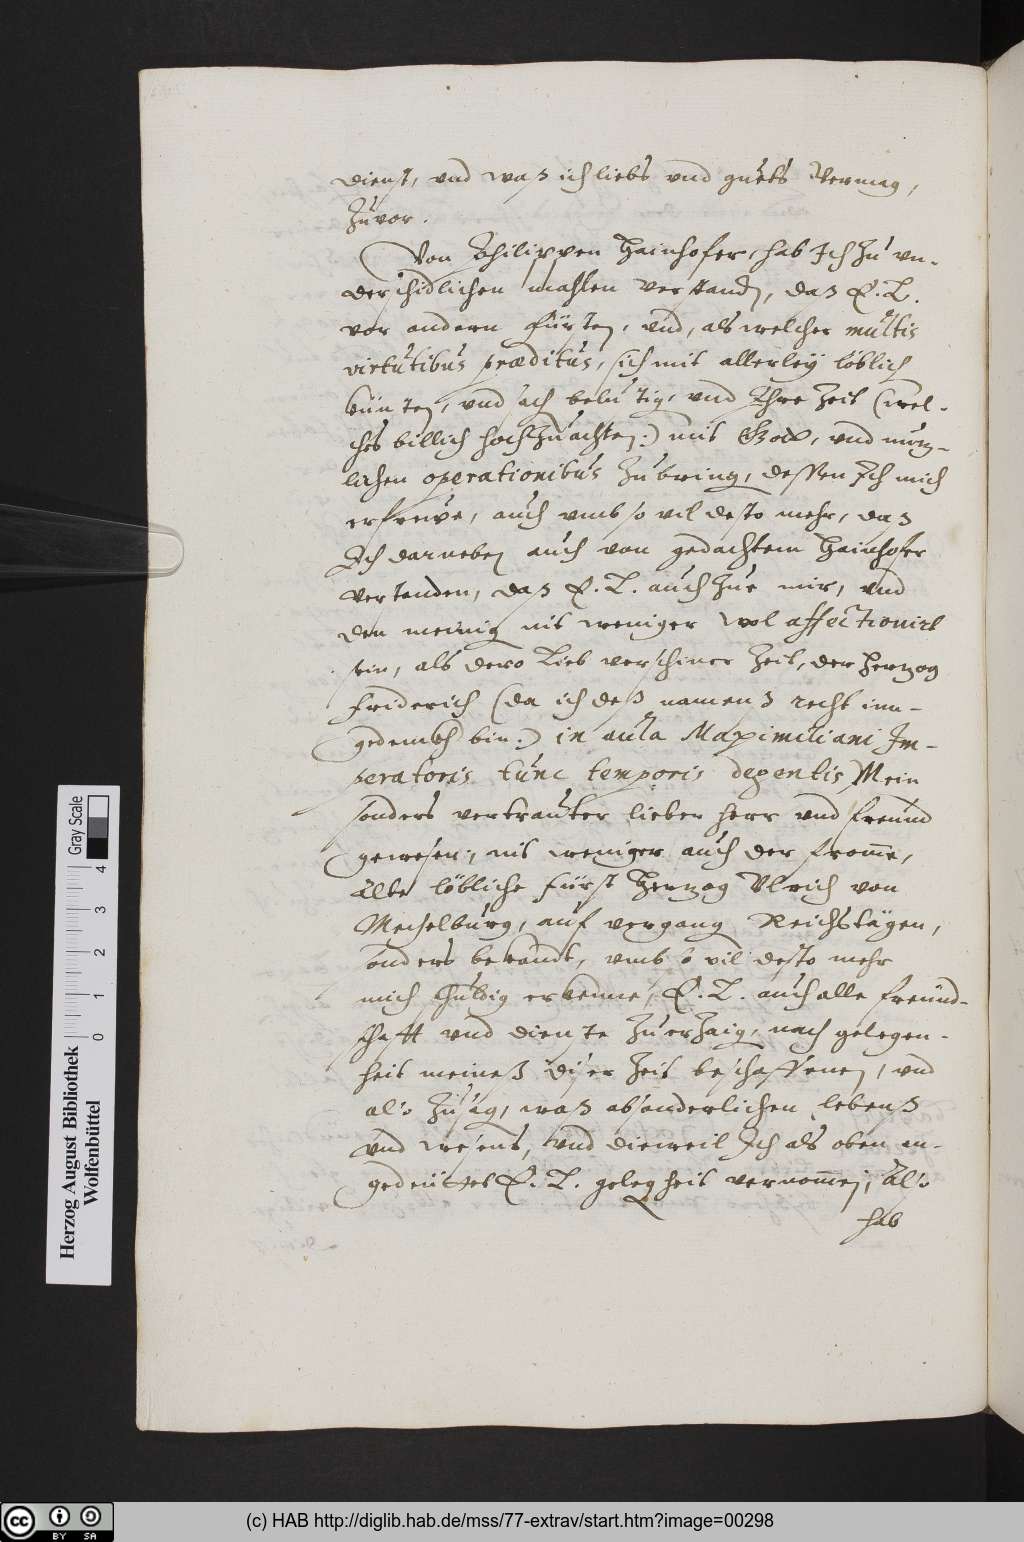 dienst, vnd waß ich liebs vnd guets Vermag,
Zuvor.
Von Philippen Hainhofer, hab Ich Zu vn-
derschidlichen mahlen verstanden, daß E. L.
vor andern Fürsten, vnd, als welcher multis
virtutibus præditus, sich mit allerley löblichen
künsten, vnd sachen belustigen, vnd Ihre Zeit (wel-
ches billich hochZuachten:) mit Gott, vnd nuz-
lichen operationibus Zubringen, dessen Ich mich
erfreye, auch vmb so vil desto mehr, daß
Ich darneben auch von gedachtem Hainhofer
verstanden, daß E. L. auch Zue mir, vnd
den meinigen nit weniger wol affectionirt
sein, als dero Lieb verschiner Zeit, der Herzog
Friderich (da ich deß namenß recht inn-
gedenkh bin:) in aula Maximiliani Im-
peratoris tunc temporis degentis Mein
sonders vertrauter lieber Herr vnd freund
gewesen, nit weniger auch der fromme,
Alte löbliche Fürst Herzog Vlrich von
Mechelburg, auf vergangnen Reichstägen,
sonders bekandt, vmb so vil desto mehr
mich schuldig erkenne, E. L. auch alle freünd-
schafft vnd dienste Zuerzaigen, nach gelegen-
heit meineß diser Zeit beschaffenen, vnd
also Zusagen, waß absonderlichen lebenß
vnd wesens, vnd dieweil Ich als oben an-
gedeüttet E. L. gelegenheit vernommen, also
hab
Herzog August Bibliothek
Wolfenbüttel
0 1 2 3 4
Gray Scale
(c) HAB http://diglib.hab.de/mss/77-extrav/start.htm?image=00298
cc BY SA